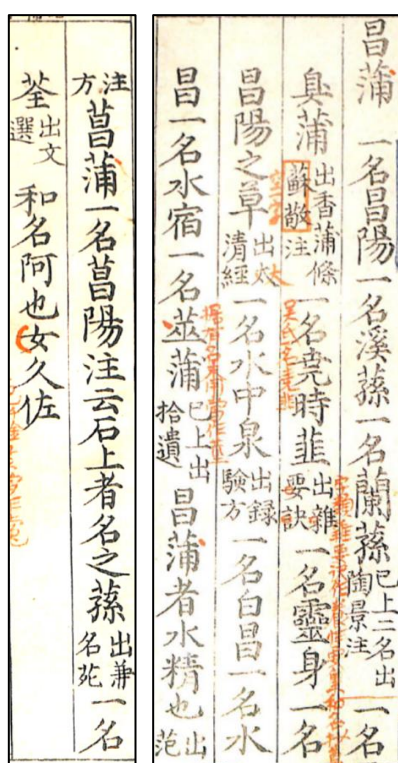 昌蒲 一名昌陽一名溪蓀一名蘭蓀已上二名出陶景注一名
臭蒲出香蒲條蘇敬注一名堯時韮出雜要訣一名靈身一名
昌陽之草出太清經一名水中泉出録驗方一名白昌一名水
昌一名水宿一名莁蒲已上出拾遺 昌蒲者水精也出范
注方菖蒲一名菖陽注云石上者名之蓀出兼名苑一名
荃出文選 和名阿也女久佐